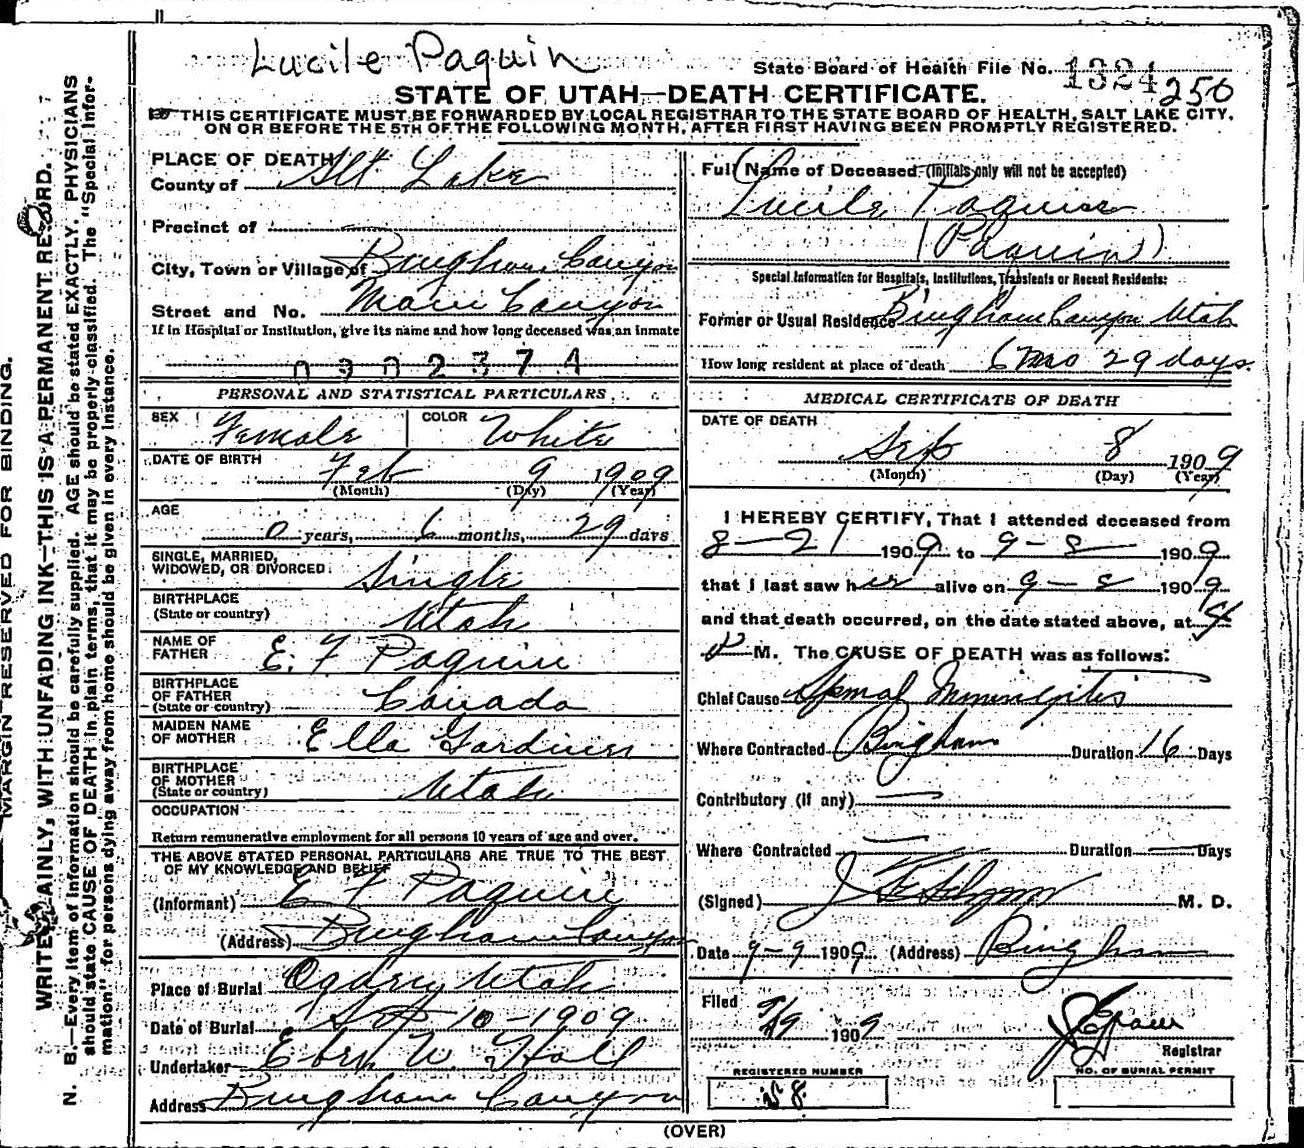 Lucile Paquin
State Board of Health File No. 1324 250
STATE OF UTAH—DEATH CERTIFICATE.
THIS CERTIFICATE MUST BE FORWARDED BY LOCAL REGISTRAR TO THE STATE BOARD OF HEALTH, SALT LAKE CITY,
ON OR BEFORE THE 5TH OF THE FOLLOWING MONTH, AFTER FIRST HAVING BEEN PROMPTLY REGISTERED.
MARGIN RESERVED FOR BINDING.
WRITE PLAINLY, WITH UNFADING INK—THIS IS A PERMANENT RECORD.
N. B.—Every item of information should be carefully supplied. AGE should be stated EXACTLY. PHYSICIANS
should state CAUSE OF DEATH in plain terms, that it may be properly classified. The "Special Infor-
mation" for persons dying away from home should be given in every instance.
PLACE OF DEATH
County of Slt Lake
Precinct of —
City, Town or Village of Bingham Canyon
Street and No. Main Canyon
If in Hospital or Institution, give its name and how long deceased was an inmate
0302374
PERSONAL AND STATISTICAL PARTICULARS
SEX Female COLOR White
DATE OF BIRTH Feb 9 1909
(Month) (Day) (Year)
AGE
0 years, 6 months, 29 days
SINGLE, MARRIED,
WIDOWED, OR DIVORCED Single
BIRTHPLACE
(State or country) Utah
NAME OF
FATHER E. F Paquin
BIRTHPLACE
OF FATHER
(State or country) Canada
MAIDEN NAME
OF MOTHER Ella Gardiner
BIRTHPLACE
OF MOTHER
(State or country) Utah
OCCUPATION
Return remunerative employment for all persons 10 years of age and over.
THE ABOVE STATED PERSONAL PARTICULARS ARE TRUE TO THE BEST
OF MY KNOWLEDGE AND BELIEF
(Informant) E F Paquin
(Address) Bingham Canyon
Place of Burial Ogden Utah
Date of Burial Sept 10-1909
Undertaker Eben W. Hall
Address Bingham Canyon
Full Name of Deceased—(Initials only will not be accepted)
Lucile Paquin
(Paquin)
Special Information for Hospitals, Institutions, Transients or Recent Residents:
Former or Usual Residence Bingham Canyon Utah
How long resident at place of death 6 mo 29 days.
MEDICAL CERTIFICATE OF DEATH
DATE OF DEATH
Sep 8 1909
(Month) (Day) (Year)
I HEREBY CERTIFY, That I attended deceased from
8—21 1909 to 9—8 1909
that I last saw her alive on 9—8 1909
and that death occurred, on the date stated above, at
M. The CAUSE OF DEATH was as follows:
Chief Cause Spinal Meningitis
Where Contracted Bingham Duration 16 Days
Contributory (if any) —
Where Contracted — Duration — Days
(Signed) M. D.
Date 9-9 1909. (Address) Bingham
Filed 9/9 1909
Registrar
REGISTERED NUMBER
58
NO. OF BURIAL PERMIT
(OVER)